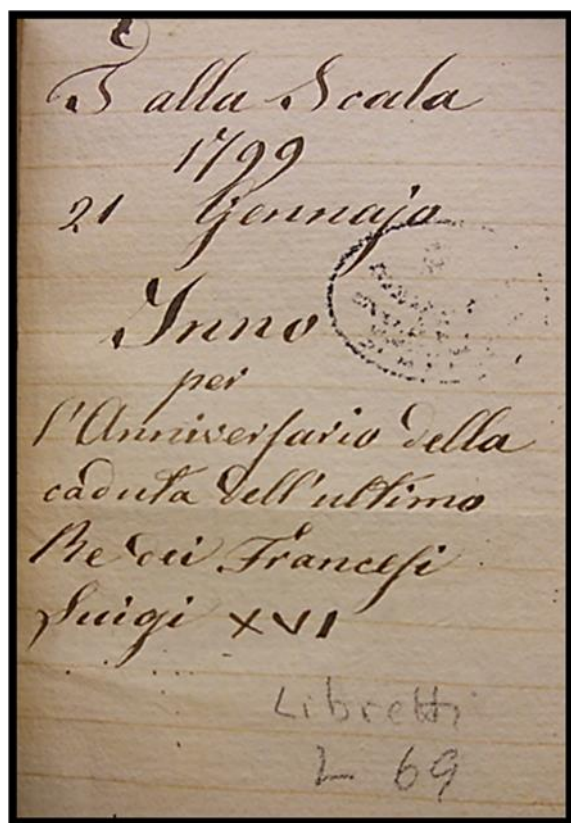 T alla Scala
1799
21 Gennajo
Inno
per
l'Anniversario della
caduta dell'ultimo
Re dei Francesi
Luigi XVI
Libretti
L 69